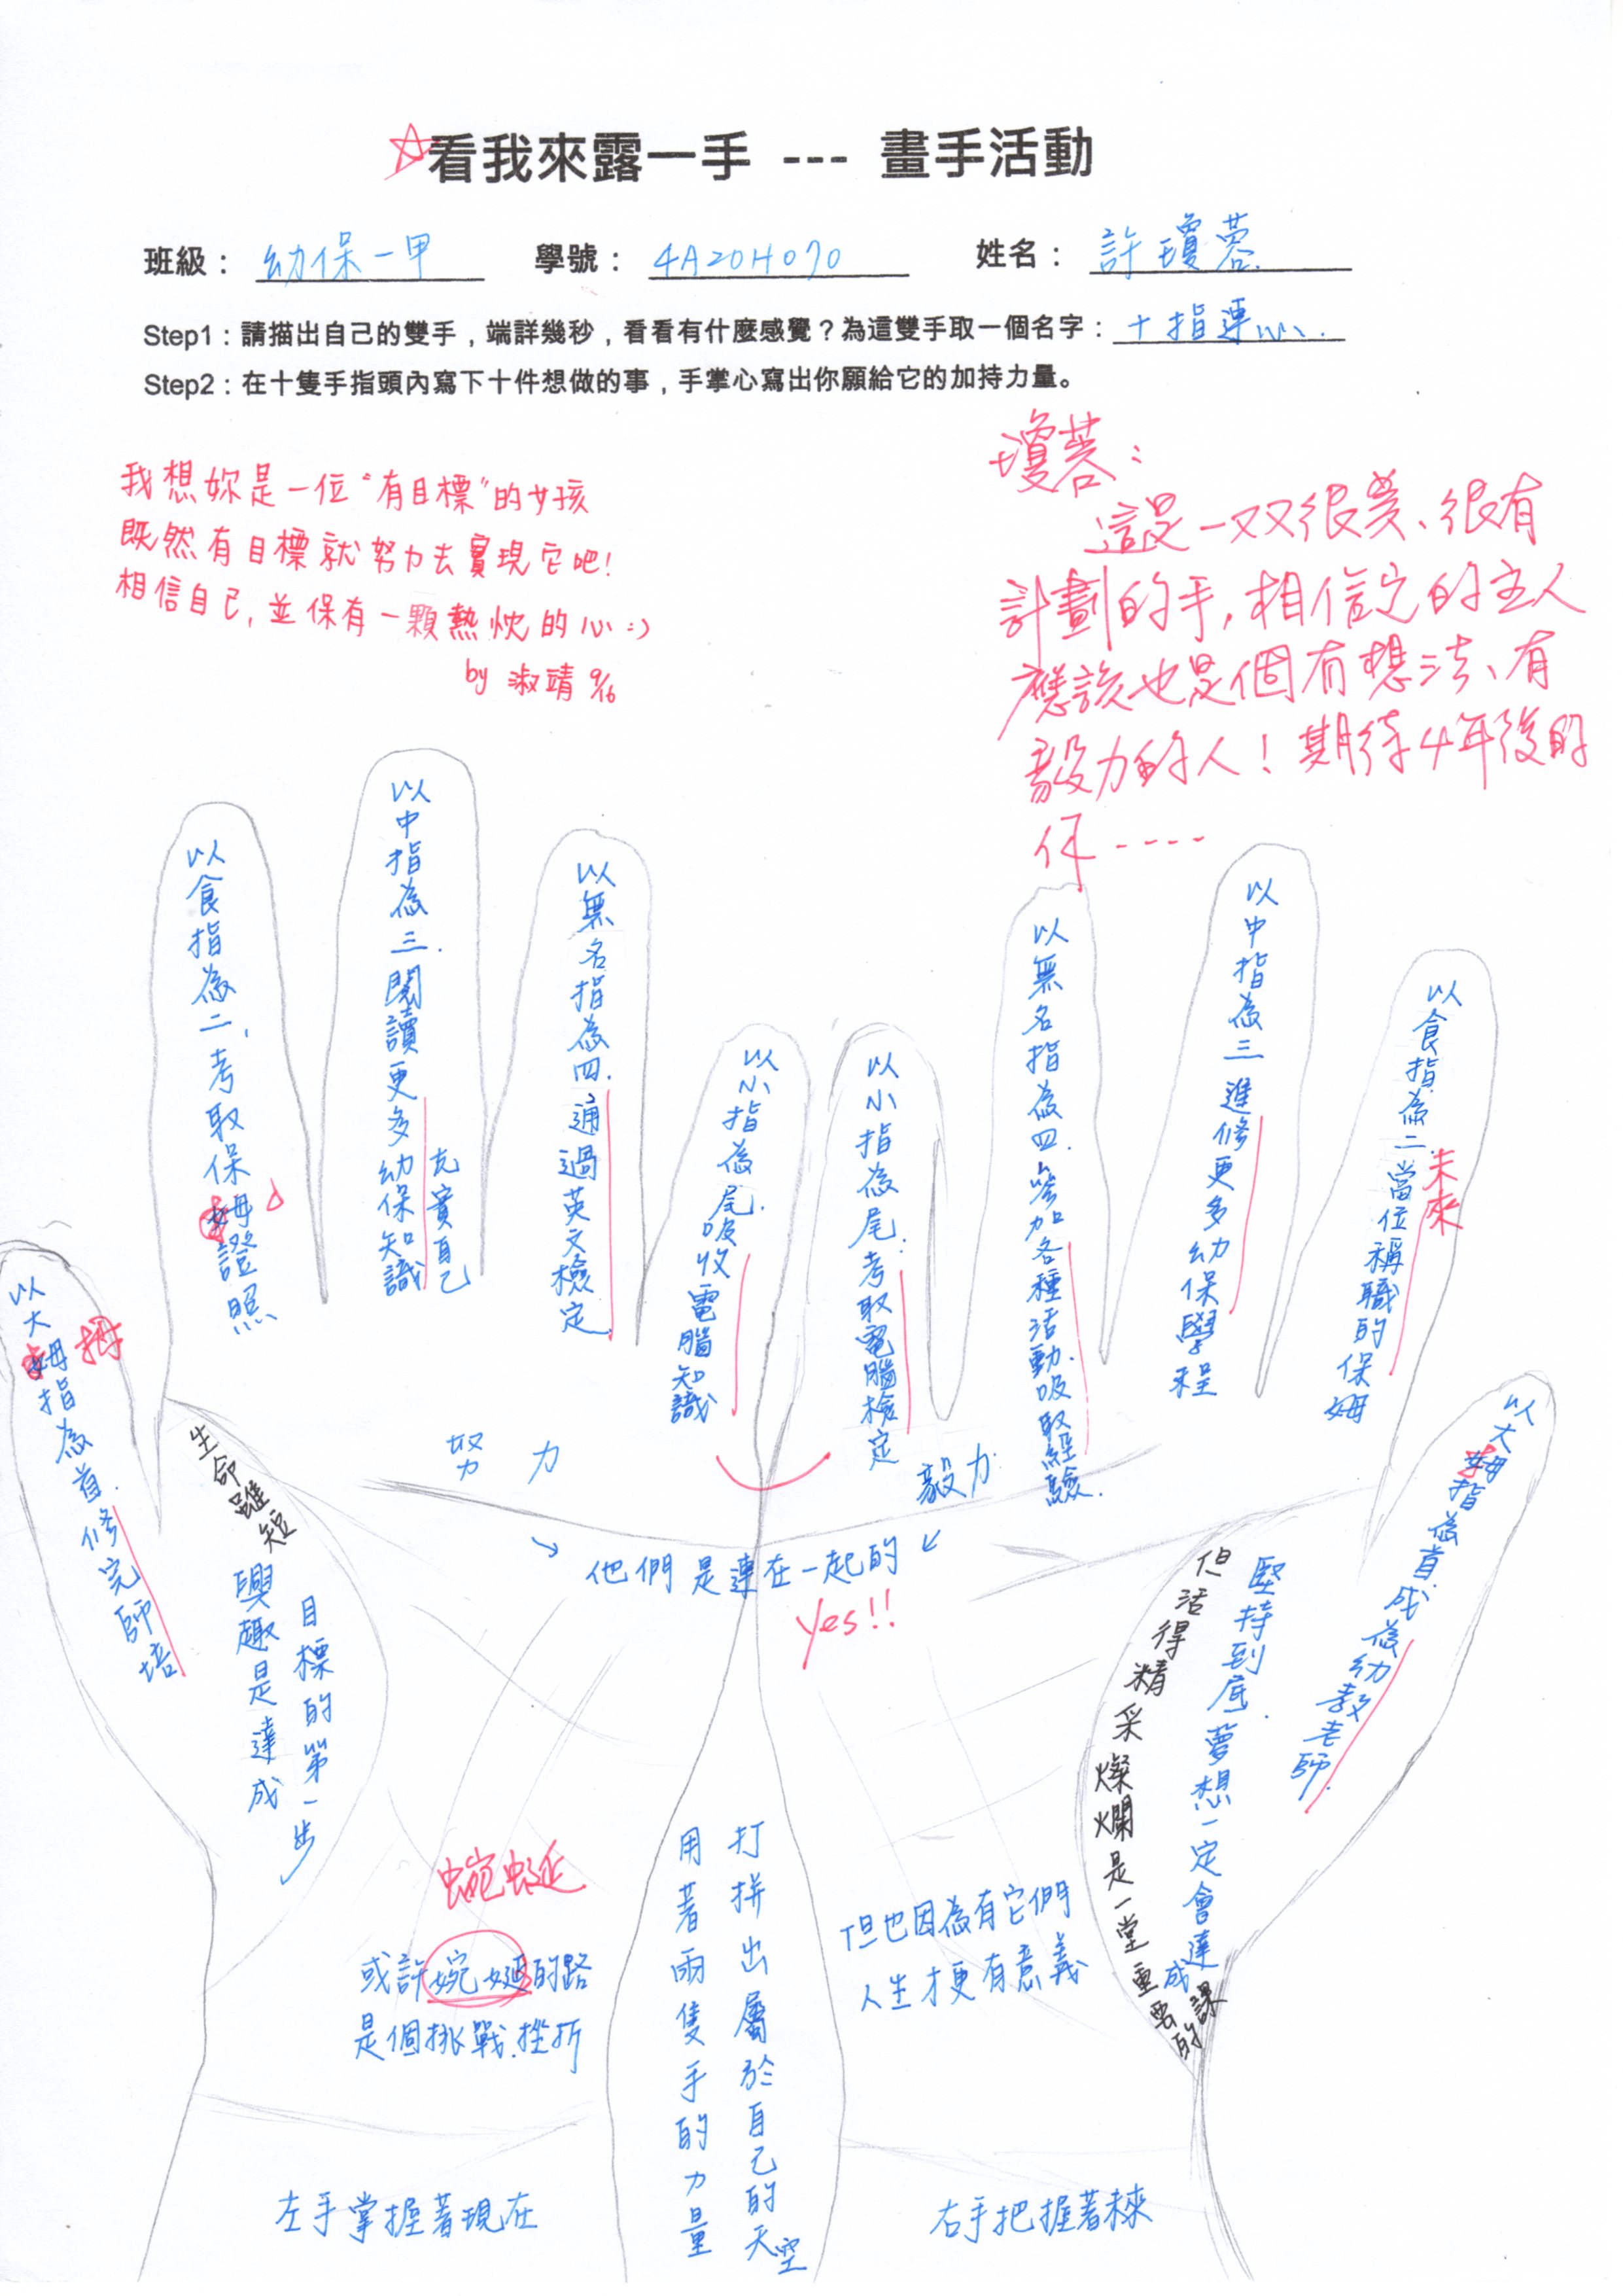 ☆看我來露一手 --- 畫手活動
班級：幼保一甲 學號：4A20H070 姓名：許瓊蓉
Step1：請描出自己的雙手，端詳幾秒，看看有什麼感覺？為這雙手取一個名字：十指連心.
Step2：在十隻手指頭內寫下十件想做的事，手掌心寫出你願給它的加持力量。
我想妳是一位“有目標”的女孩
既然有目標就努力去實現它吧!
相信自己,並保有一顆熱忱的心:)
by 淑靖 9/16
瓊蓉：
這是一双很美、很有
計劃的手,相信它的主人
應該也是個有想法、有
毅力的人！期待4年後的
你----
以大姆指為首.修完師培
拇
以食指為二,考取保姆證照
以中指為三.閱讀更多幼保知識
充實自己
以無名指為四.通過英文檢定
以小指為尾.吸收電腦知識
以小指為尾.考取電腦檢定
以無名指為四.參加各種活動.吸取經驗.
以中指為三進修更多幼保學程
以食指為二.當位稱職的保姆
未來
以大姆指為首.成為幼教老師.
努力
毅力
他們是連在一起的
yes!!
生命雖短
興趣是達成
目標的第一步
但活得精采燦爛是一堂重要的課
堅持到底.夢想一定會達成
蜿蜒
或許婉娫的路
是個挑戰.挫折
但也因為有它們
人生才更有意義
用著兩隻手的力量
打拼出屬於自己的天空
左手掌握著現在
右手把握著未來